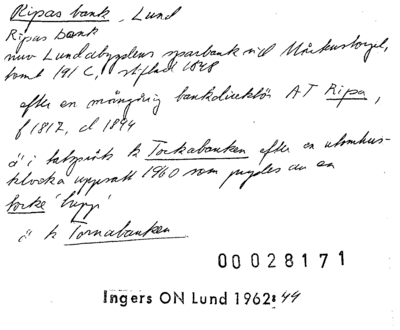 Ripas bank, Lund
Ripas bank
nuv Lundabygdens sparbank vid Mårtenstorget,
tomt 191 C, stiftad 1848
efter en mångårig bankdirektör A T Ripa,
f 1817, d 1894
ä i talspråk k Torkabanken efter en utomhus-
klocka uppsatt 1960 som pryddes av en
torké'
ä k Tornabanken
00028171
Ingers ON Lund 1962: 44